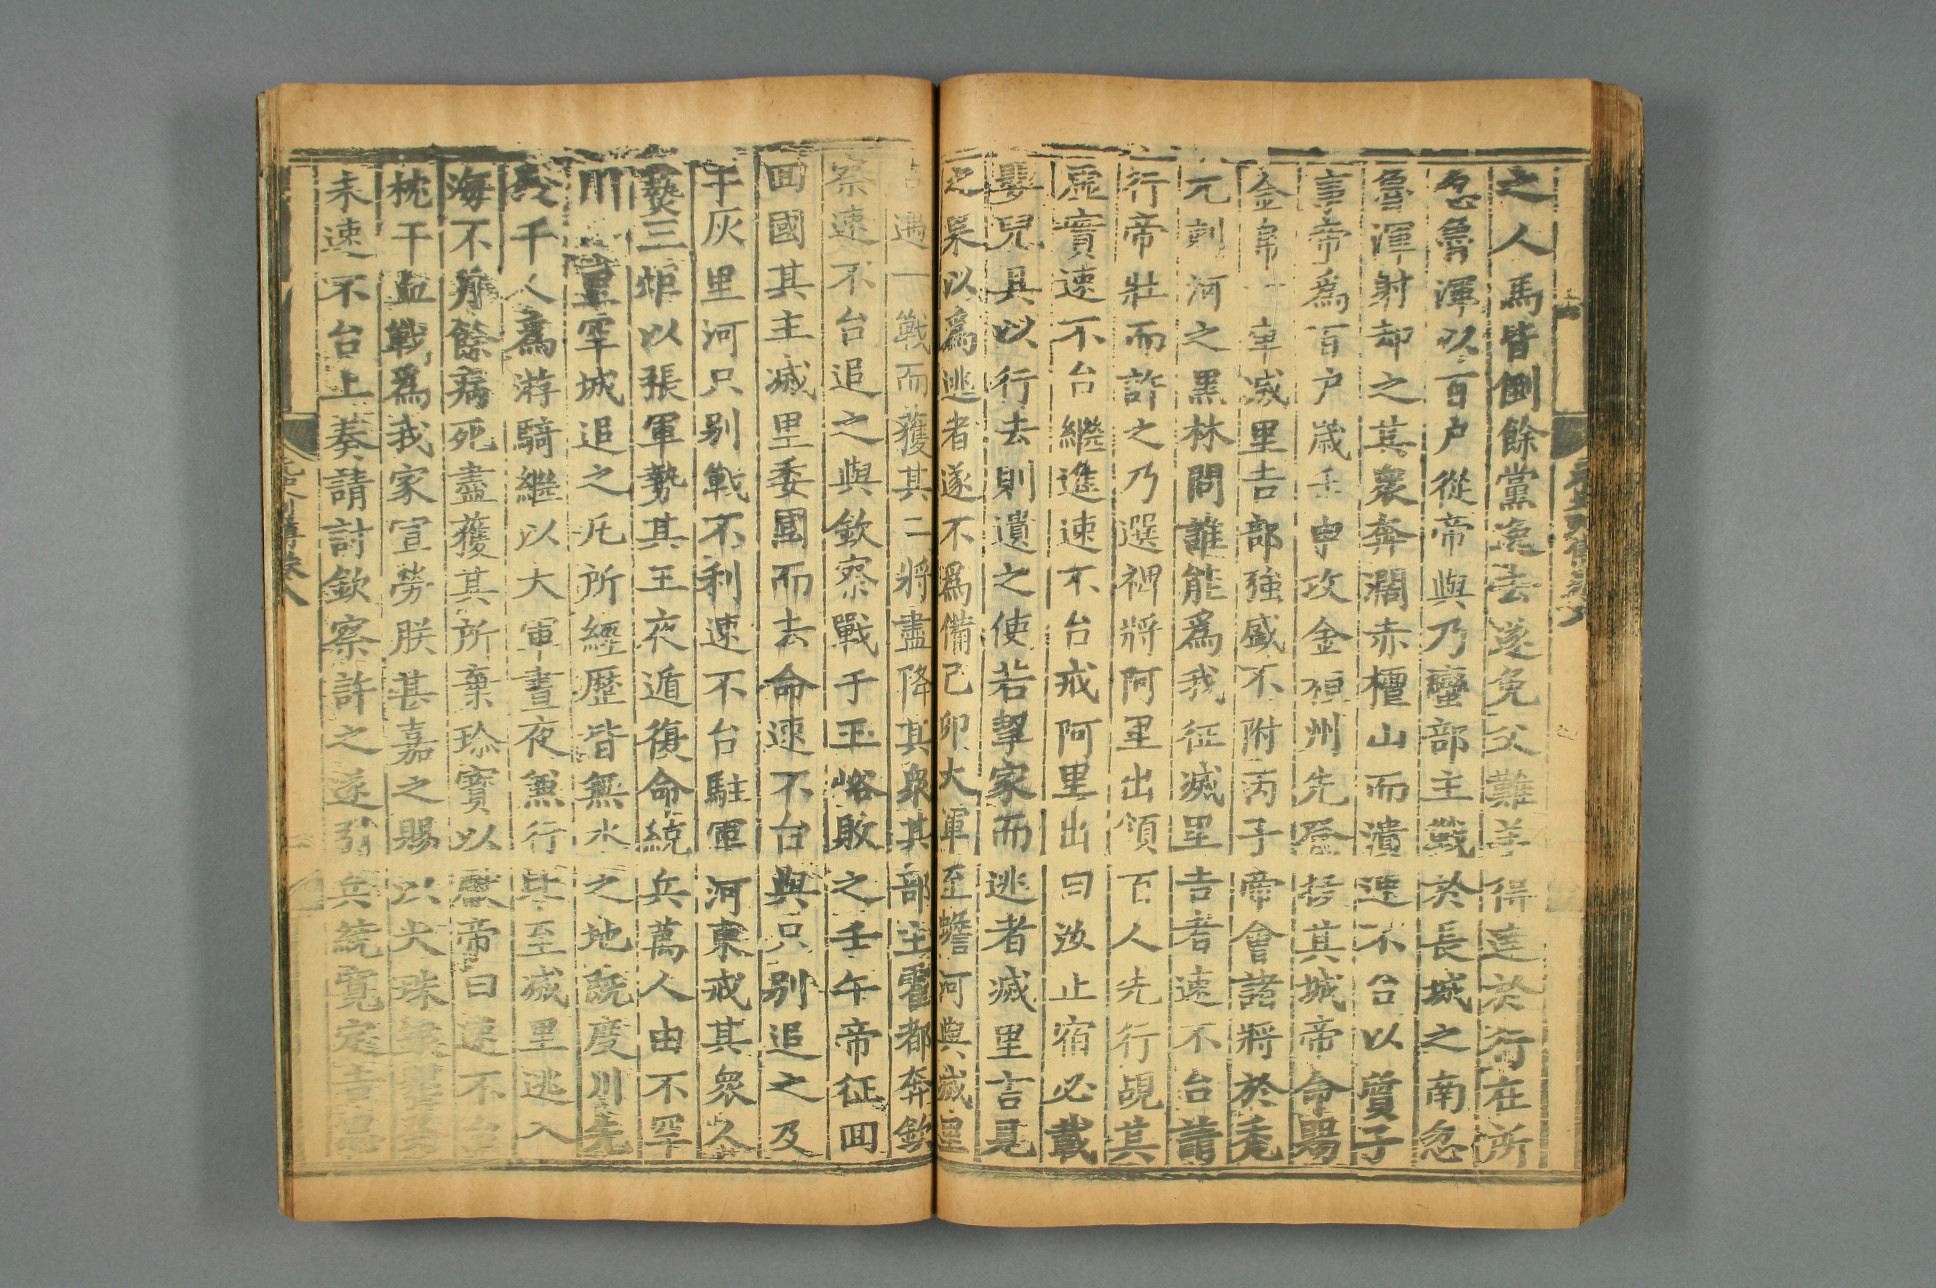 之人馬皆倒餘黨逸去遂免父難羊得達於行在所
忽魯渾以百戶從帝與乃蠻部主戰於長城之南忽
魯渾射却之其衆奔濶赤檀山而潰速不台以質子
事帝爲百戶歲壬申攻金桓州先登拔其城帝命賜
金帛一車滅里吉部強盛不附丙子帝會諸將於禿
兀剌河之黑林問誰能爲我征滅里吉者速不台請
行帝壯而許之乃選裨將阿里出領百人先行覘其
虛實速不台繼進速不台戒阿里出曰汝止宿必載
嬰兒具以行去則遺之使若挈家而逃者滅里吉見
之果以爲逃者遂不爲備己卯大軍至蟾河與滅里
吉遇一戰而獲其二將盡降其衆其部主霍都奔欽
察速不台追之與欽察戰于玉峪敗之壬午帝征回
回國其主滅里委國而去命速不台與只别追之及
于灰里河只别戰不利速不台駐軍河東戒其衆人
爇三炬以張軍勢其王夜遁復命統兵萬人由不罕
川必里罕城追之凡所經歷皆無水之地旣度川先
發千人爲游騎繼以大軍晝夜兼行比至滅里逃入
海不月餘病死盡獲其所棄珍寶以獻帝曰速不台
枕干血戰爲我家宣勞朕甚嘉之賜以大珠銀甖癸
未速不台上奏請討欽察許之遂引兵繞寬定吉思
元史列傳卷八